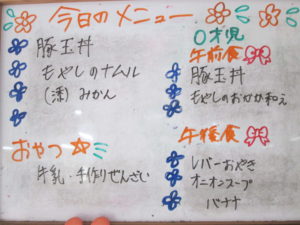 今日のメニュー
豚玉丼
もやしのナムル
(漂) みかん
おやつ
牛乳・手作りぜんざい
0才児
午前食
豚玉丼
もやしのおかか和え
午後食
レバーおやき
オニオンスープ
バナナ